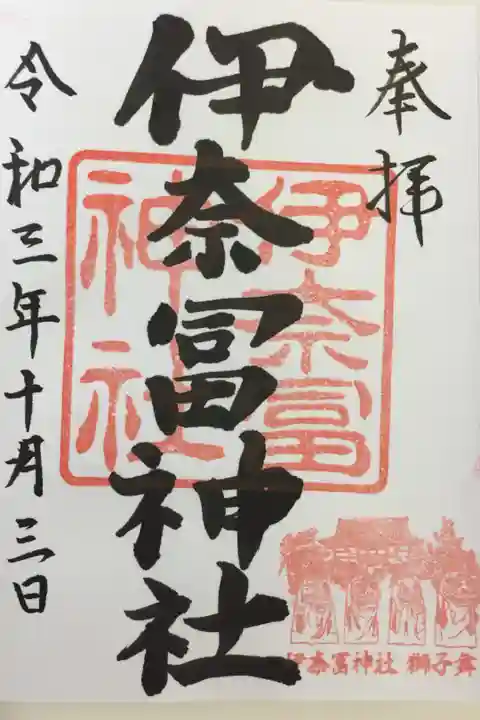 奉拝
伊奈冨神社
伊奈冨
神社
令和三年十月三日
伊奈冨神社 獅子舞